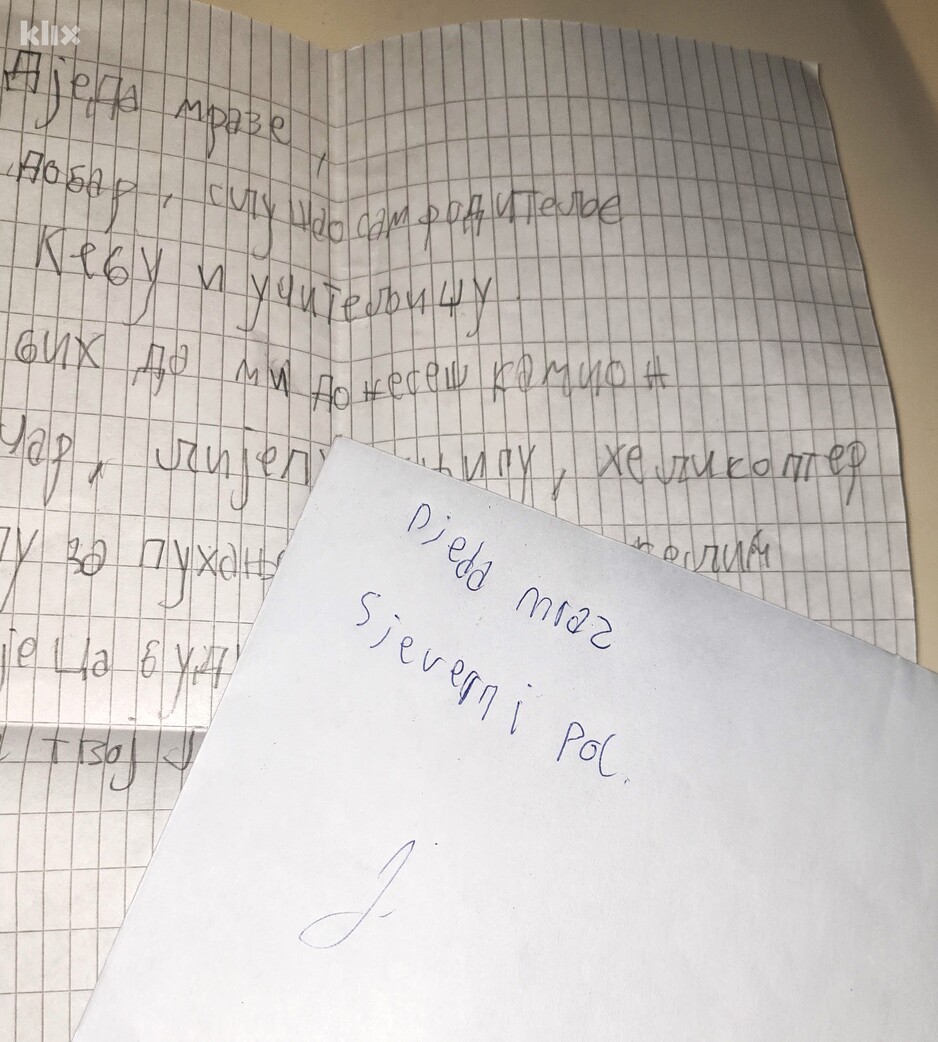 klix
Дједа мразе,
добар, слушао сам родитеље
Кебу и учитељицу
бих да ми донесеш камион
чар, лијепу пилу, хеликоптер
за желим
јеца
твој Ј
Djeda mraz
Sjeverni Pol.
J.